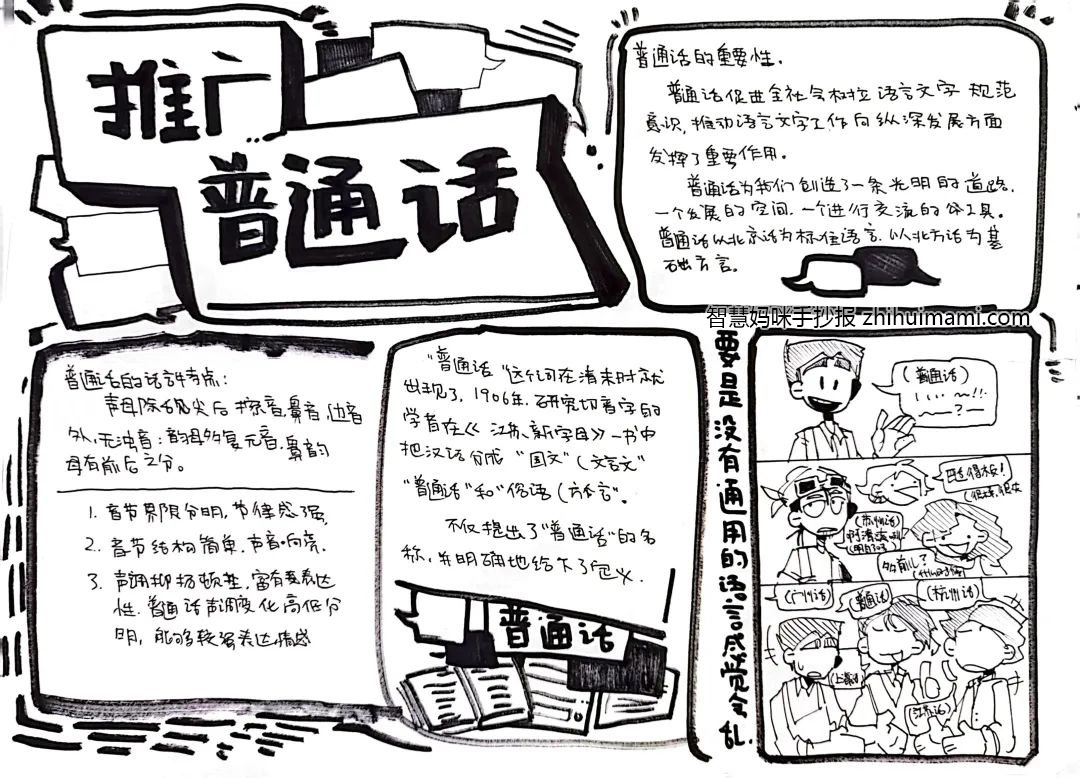 推广
普通话
普通话的重要性.
普通话促进全社会树立语言文字规范
意识,推动语言文字工作向纵深发展方面
发挥了重要作用。
普通话为我们创造了一条光明的道路.
一个发展的空间.一个进行交流的公工具。
普通话以北京话为标准语言.以北方话为基
础方言。
智慧妈咪手抄报 zhihuimami.com
普通话的语音特点:
声母除舌尖后擦音,鼻音,边音
外,无浊音;韵母多复元音.鼻韵
母有前后之分。
1. 音节界限分明,节律感强,
2. 音节结构简单.声音响亮.
3. 声调抑扬顿挫.富有表达
性.普通话声调变化高低分
明,能够较强表达情感
"普通话"这个词在清末时就
出现了,1906年.研究切音字的
学者在《江苏新字母》一书中
把汉语分成"国文"(文言文"
"普通话"和"俗语(方言"。
不仅提出了"普通话"的名
称,并明确地给下了定义.
普通话
要是没有通用的语言感觉会乱.
(普通话)
(苏州话)
(广州话)
(普通话)
(杭州话)
(上海话)